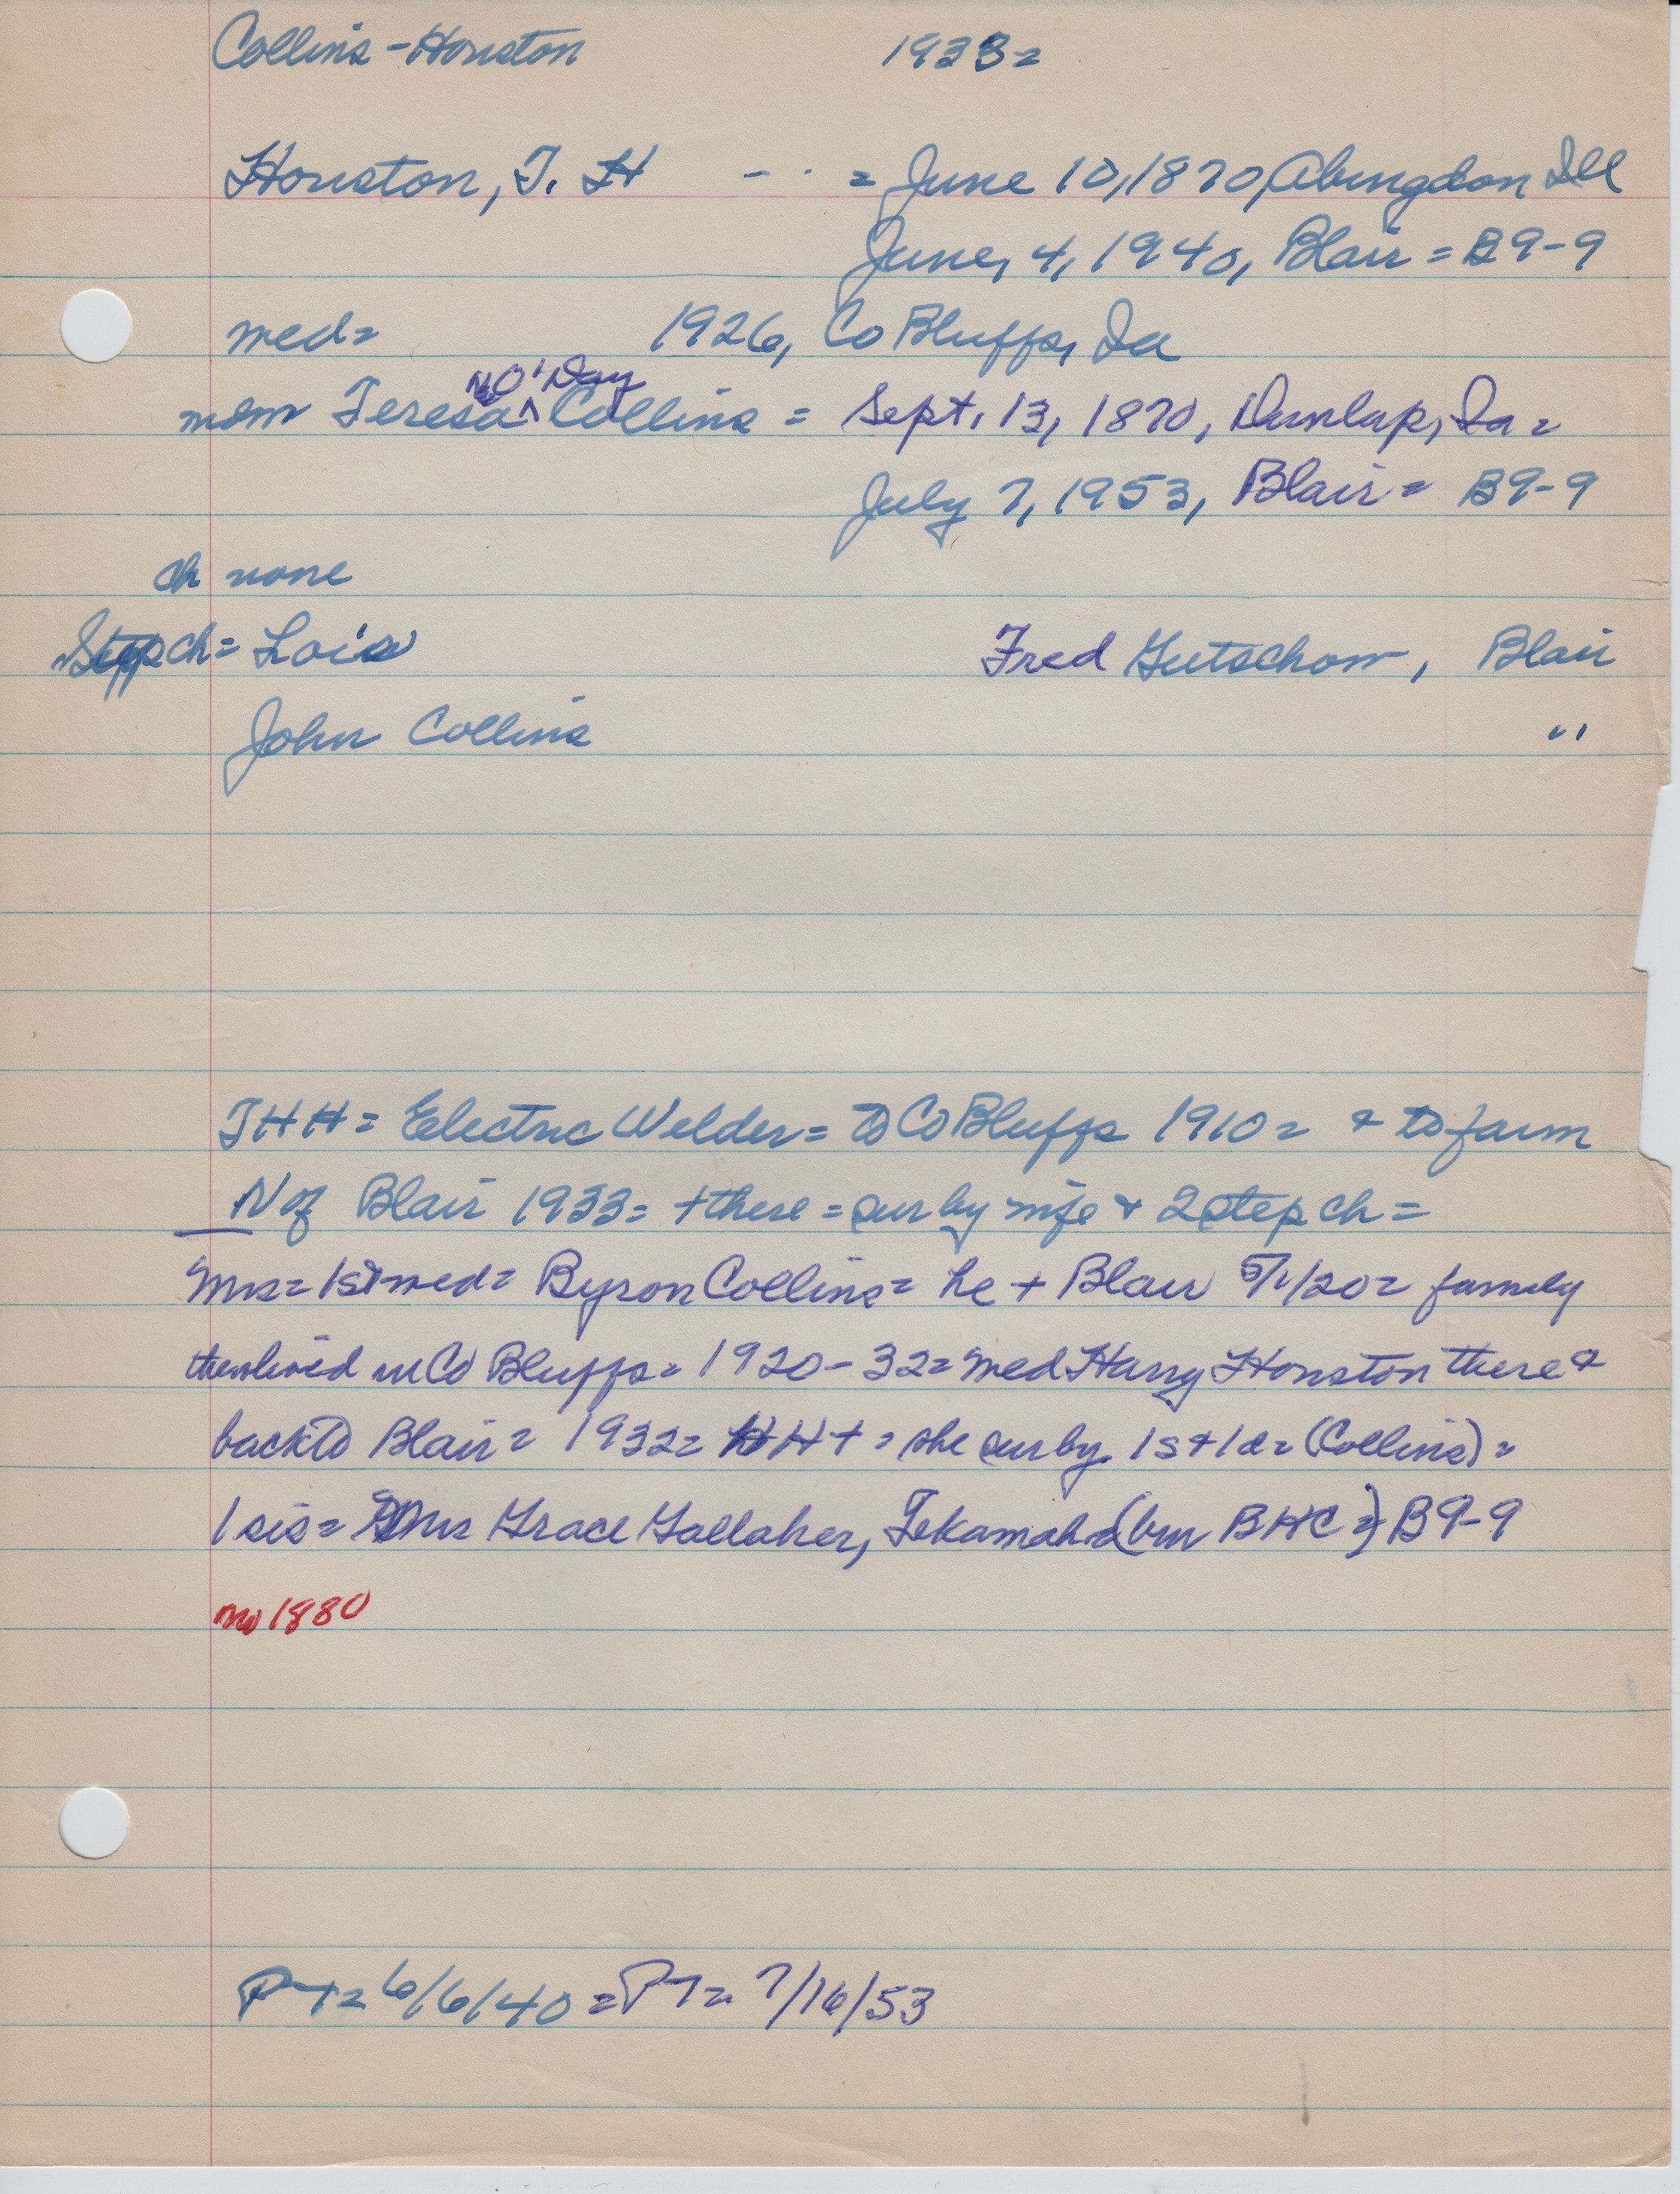 Collins - Houston 1933=
Houston, T. H - - = June 10, 1870, Abingdon Ill
June, 4, 1940, Blair = B9-9
med= 1926, Co Bluffs, Ia
O'Day
mom Teresa ^ Collins = Sept. 13, 1870, Dunlap, Ia =
July 7, 1953, Blair = B9-9
ch none
Step ch = Lois Fred Gutschow, Blair
John Collins "
THH = Electric Welder = to Co Bluffs 1910 = & to farm
N of Blair 1933 = + there = sur by wife & 2 step ch =
Mrs = 1st med = Byron Collins = he + Blair 5/1/20 = family
then lived in Co Bluffs = 1920-32 = med Harry Houston there &
back to Blair = 1932 = HH + = she sur by 1s + 1d = (Collins) =
1 sis = Mrs Grace Gallaher, Tekamah (bur BHC =) B9-9
no 1880
PT= 6/6/40 = PT= 7/16/53